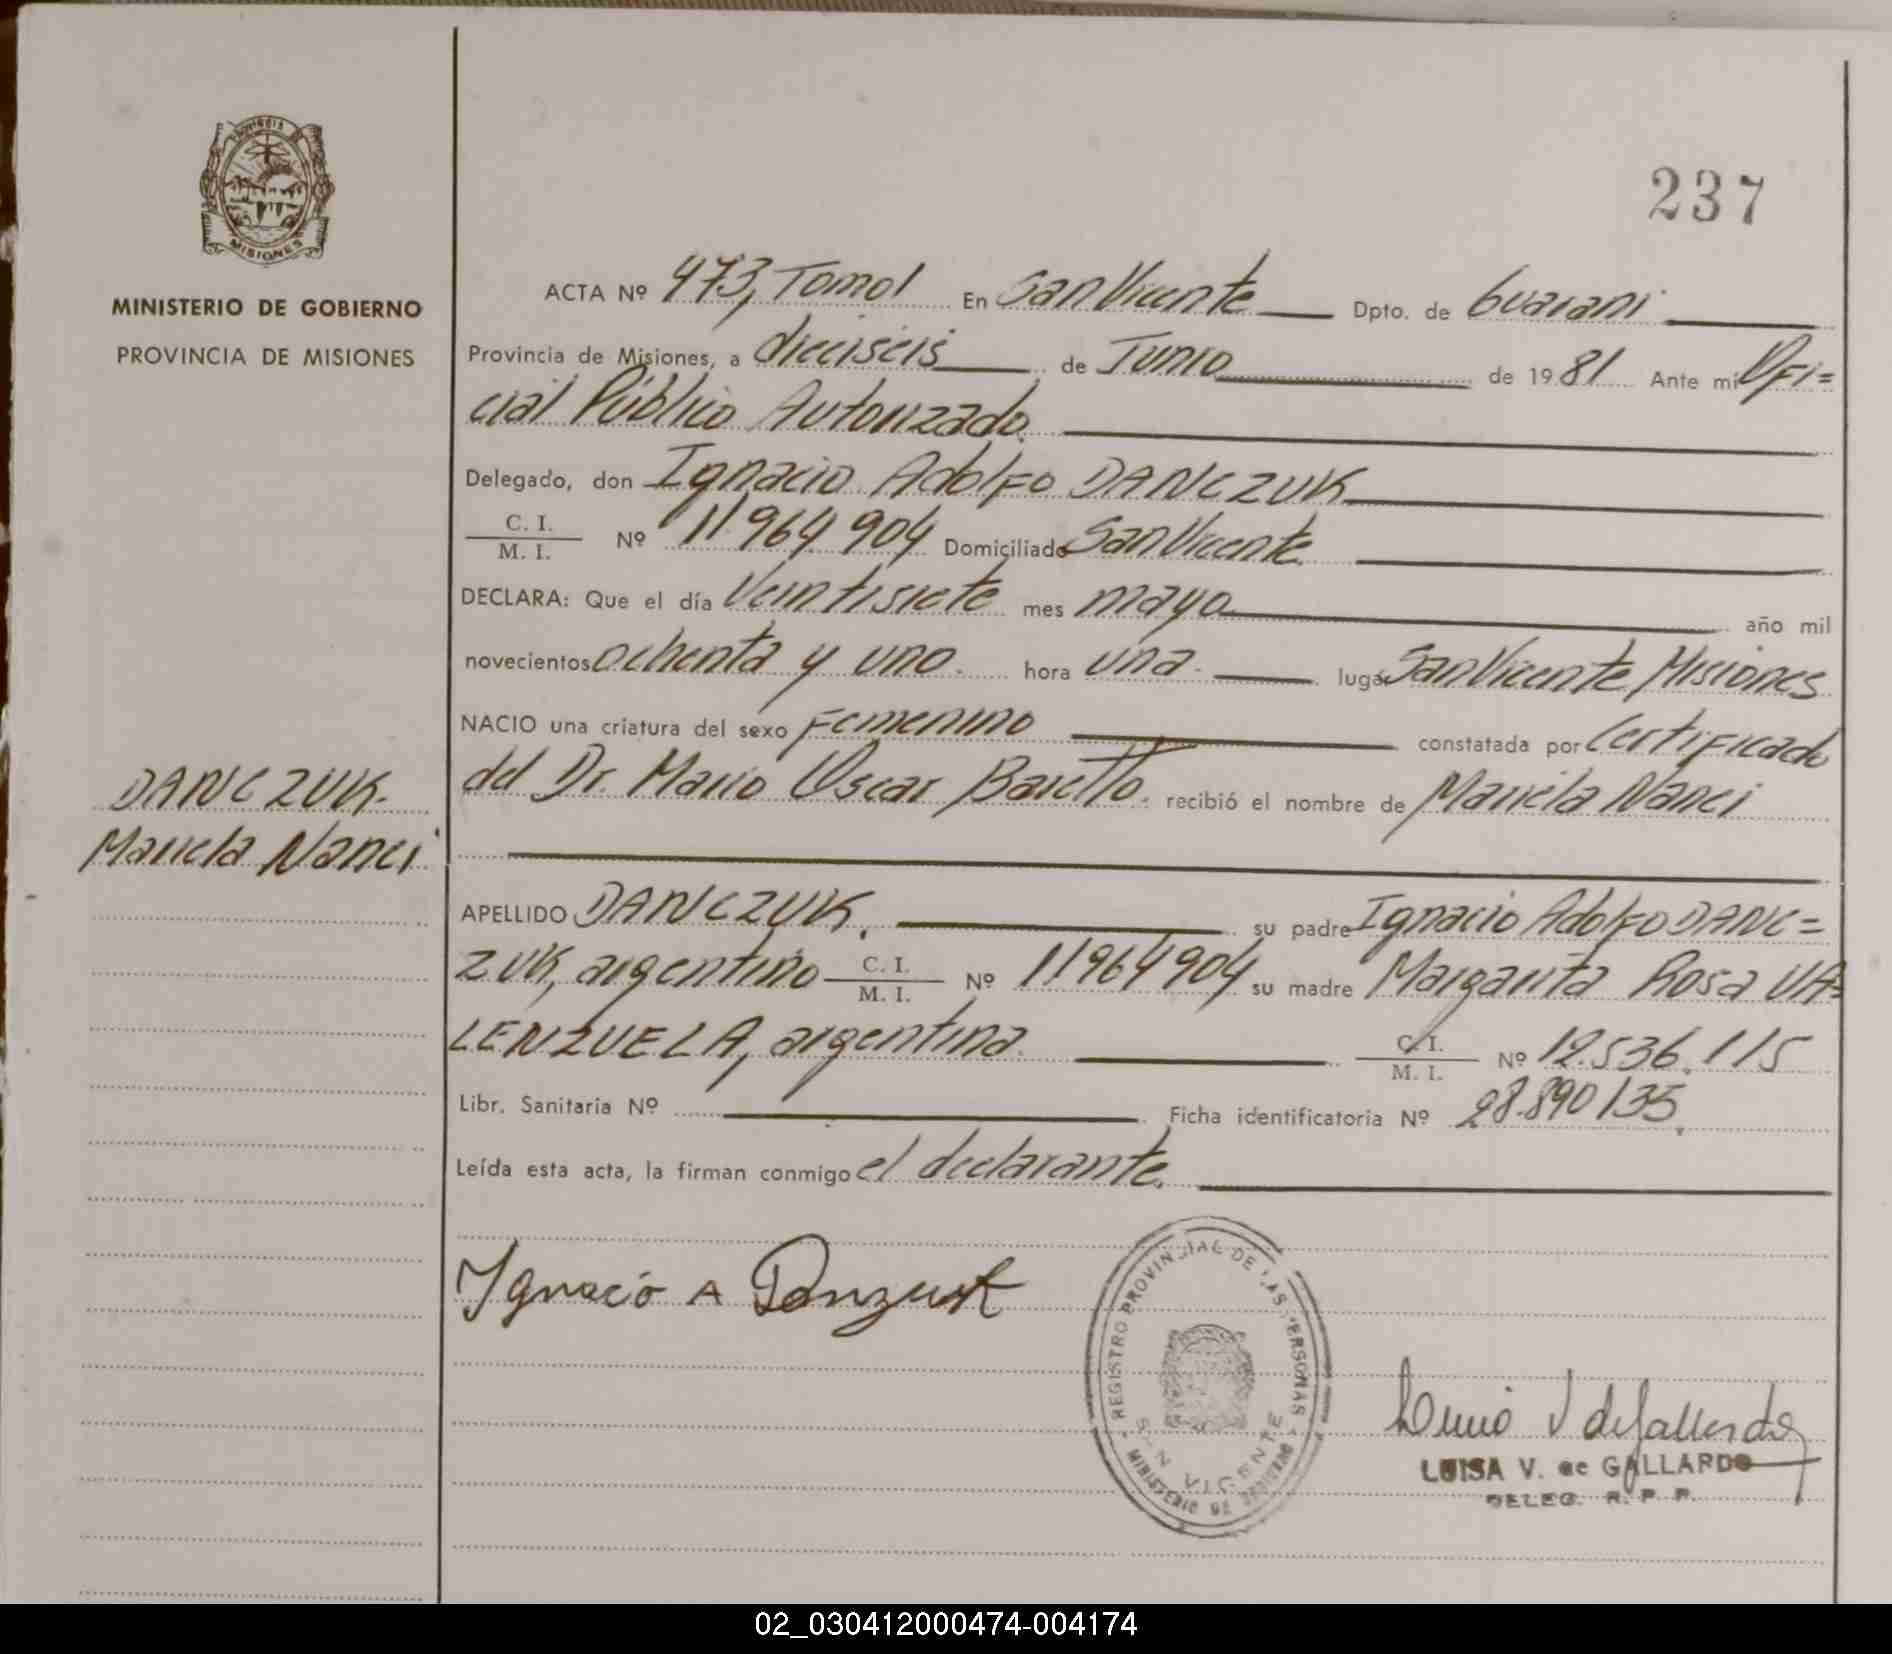 237
MISIONES
MINISTERIO DE GOBIERNO
PROVINCIA DE MISIONES
DANCZUK.
Mariela Nanci
ACTA Nº 473, Tomo I En San Vicente Dpto. de Guarani
Provincia de Misiones, a dieciseis de Junio de 1981 Ante mi Ofi=
cial Público Autorizado
Delegado, don Ignacio Adolfo DANCZUK
C. I.
M. I. Nº 11964904 Domiciliado San Vicente
DECLARA: Que el día Veintisiete mes mayo año mil
novecientos ochenta y uno. hora una. lugar San Vicente Misiones
NACIO una criatura del sexo Femenino constatada por Certificado
del Dr. Mario Oscar Baretto. recibió el nombre de Mariela Nanci
APELLIDO DANCZUK. su padre Ignacio Adolfo DANC=
ZUK, argentino C. I.
M. I. Nº 11964904 su madre Margarita Rosa VA=
LENZUELA, argentina C. I.
M. I. Nº 12.536.115
Libr. Sanitaria Nº Ficha identificatoria Nº 28.890135.
Leída esta acta, la firman conmigo el declarante.
Ignacio A Danzuk
REGISTRO PROVINCIAL DE LAS PERSONAS
SAN VICENTE
MINISTERIO DE GOBIERNO
LUISA V. de GALLARDO
DELEG. R. P. P.
02_030412000474-004174